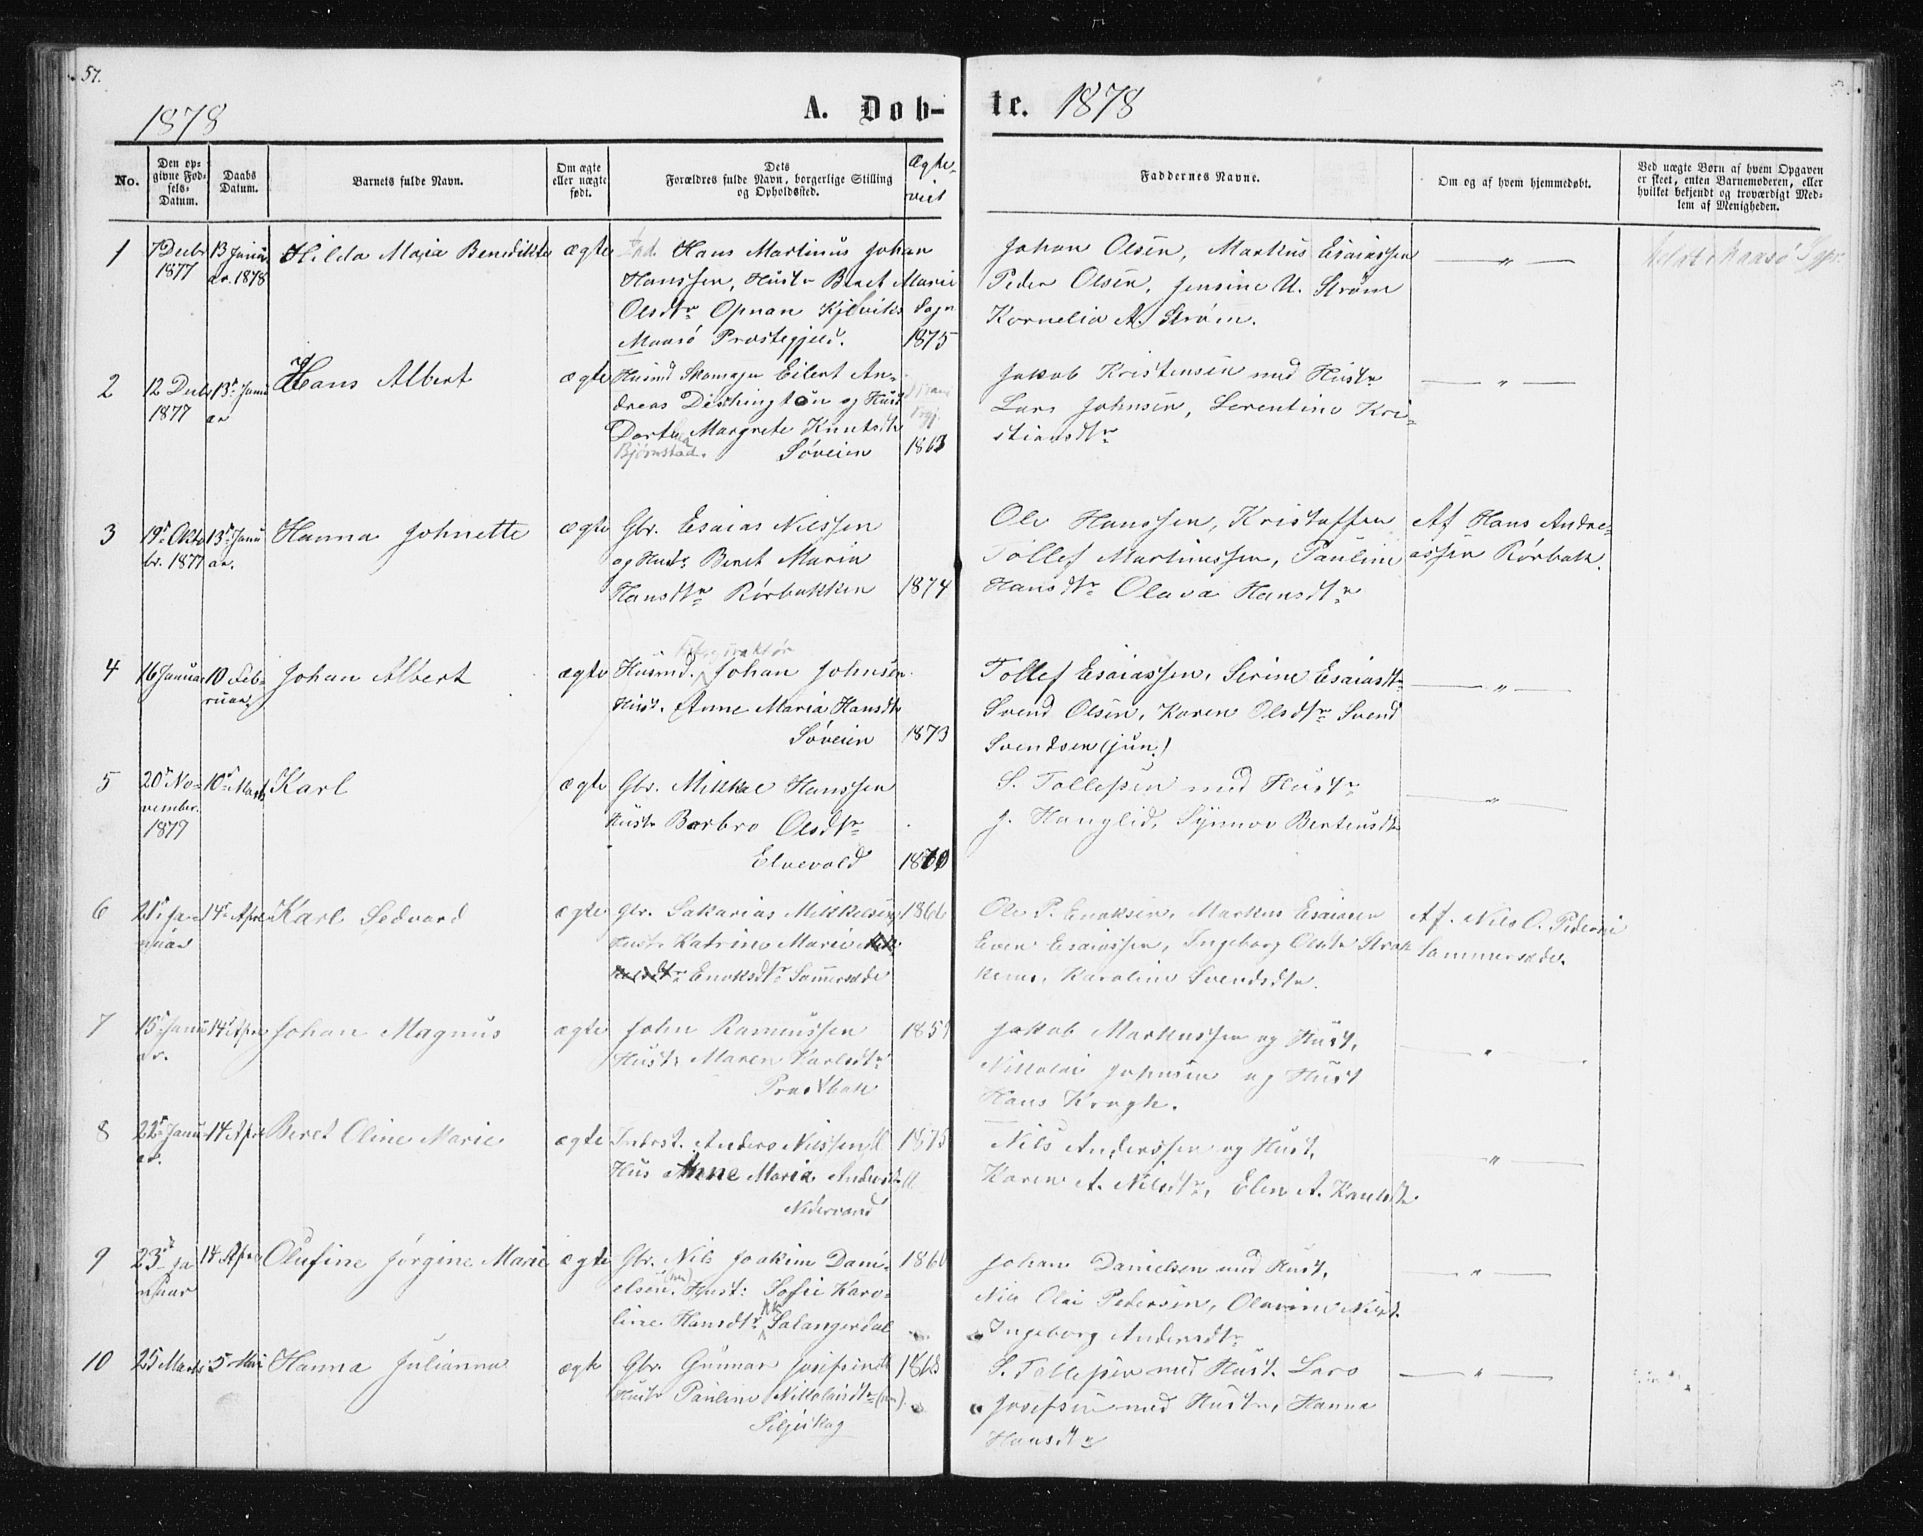 57.
1878
A. Døb-
te. 1878
No.
Den op-
givne Fød-
sels-
Datum.
Daabs
Datum.
Barnets fulde Navn.
Om ægte
eller uægte
født.
Dets
Forældres fulde Navn, borgerlige Stilling
og Opholdssted.
Ægte-
viet
Faddernes Navne.
Om og af hvem hjemmedøbt.
Ved uægte Børn af hvem Opgaven
er skeet, enten Barnemoderen, eller
hvilket bekjendt og troværdigt Med-
lem af Menigheden.
1
7 Decbr
1877
13 Janu
ar. 1878
Hilda Maria Benedikte
ægte
Hans Martinus Johan
Hanssen, Hustr Beret Marie
Olsdtr Opnan Kjelviks Sogn
Maasø Præstegjeld. 1875
Johan Olsen, Markus Esaiassen
Peder Olsen, Jensine U. Strøm
Kornelia A. Strøm.
— " —
Maasø
2
12 Decb
1877
13de Janu
ar
Hans Albert
ægte
Husmd Skomager Eilert An-
dreas Dishington og Hust
Dortea Margrete Knutsdtr
Bjørnstad. Søveien 1863
Jakob Kristensen med Hustr
Lars Johnsen, Serentine Kri-
stiansdtr
— " —
3
19de Okto
br. 1877
13de Janu
ar.
Hanna Johnette
ægte
Gbr. Esaias Nilssen
og Hustr Beret Maria
Hansdtr Rørbakken 1874
Ole Hanssen, Kristoffer
Tollef Martinussen, Pauline
Hansdtr Olava Hansdtr
Af Hans Andre-
assen Rørbak.
4
16 Januar
10 Feb-
ruar.
Johan Albert
ægte
Husmd. Johan Johnsen
Hust. Anne Maria Hansdtr
Søveien 1873
Tollef Esaiassen, Serine Esaiasdtr
Svend Olsen, Karen Olsdtr Svend
Svendsen (jun.)
— " —
5
20de No-
vember.
1879
10de Marts
Karl
ægte
Gbr. Mikkel Hanssen
Hustr Barbro Olsdtr
Elvevold
S. Tollefsen med Hustr
J. Hanglid, Synnov Berteusdtr
— " —
6
21de Ja-
nuar
14de April
Karl Sedvard
ægte
Gbr. Sakarias Mikkelsen 1866
Hustr Katrine Marie
Enoksdtr Sommersæde
Ole P. Enoksen, Markus Esaiasen
Even Esaiassen, Ingeborg Olsdtr
Karoline Svendsdtr.
Af. Nils O. Pedersen
Sommersæde.
7
15de Janu
ar.
14de April
Johan Magnus
ægte
John Rasmussen
Hustr Maren Karlsdtr
Præstbak
Jakob Markussen og Hust.
Nikolai Johnsen og Hust
Hans Krogh.
— " —
8
22de Janu
ar.
14 April
Beret Oline Marie
ægte
Indrst. Anders Nilssen 1875
Hus Anne Maria Andersdtr
Nedervand
Nils Anderssen og Hust.
Karen A. Nilsdtr, Elen A. Karlsdtr
— " —
9
23de Ja
nuar
14 April
Olufine Jørgine Marie
ægte
Gbr. Nils Joakim Dani-
elsen Hust: Sofie Karo-
line Hansdtr Salangerdal
1860
Johan Danielsen med Hust.
Nils Olai Pedersen, Olavine Nilsdtr
Ingeborg Andersdtr
— " —
10
25 Marts
5 Mai
Hanna Julianna
ægte
Gbr. Gunnar Josefsen 1868
Hustr Pauline Nikolaisdtr
Siljeskog
S. Tollefsen med Hust. Lars
Josefsen med Hustr, Hanna
Hansdtr
— " —